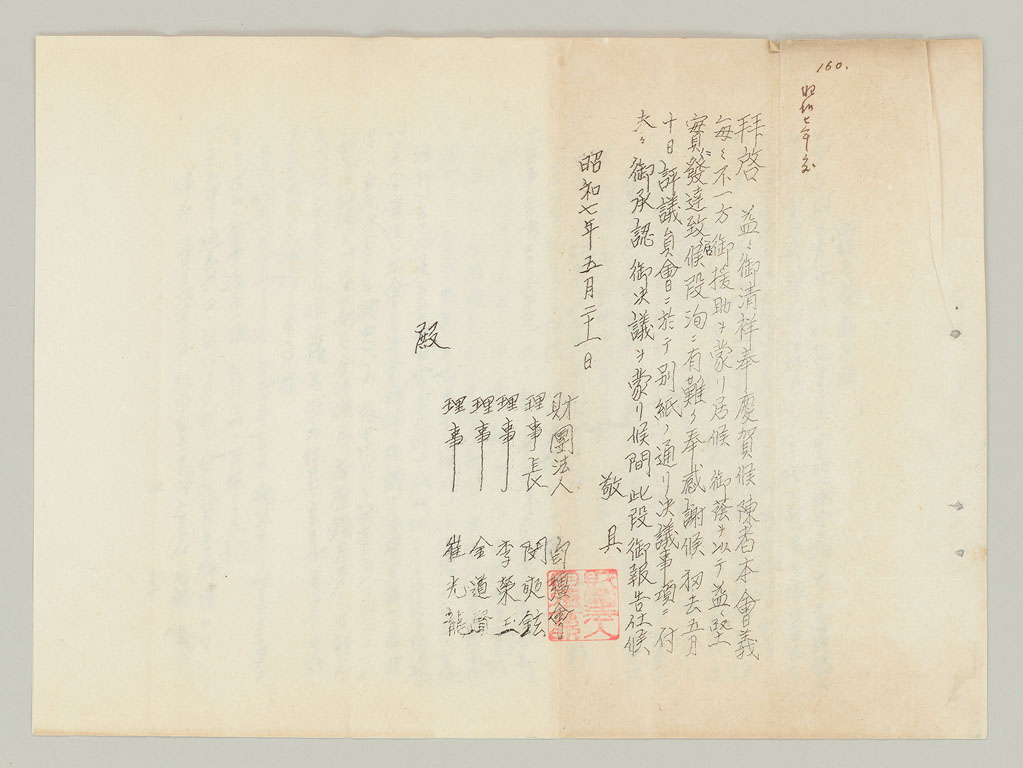 160.
昭和七年度
拝啓 益々御清祥奉慶賀候陳者本會義
毎々不一方御援助ヲ蒙リ居候 御蔭ヲ以テ益々堅
實發達致候段洵ニ有難ク奉感謝候 扨去五月
十日評議員會ニ於テ別紙ノ通リ決議事項ニ付
夫々御承認御決議ヲ蒙リ候間此段御報告仕候
敬具
昭和七年五月二十一日
財團法人
理事長 閔奭鉉
理事 李榮玉
理事 金道賢
理事 崔光龍
殿